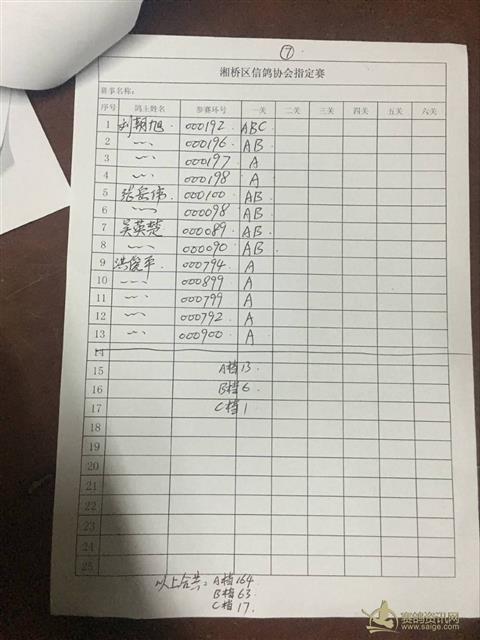 ⑦
湘桥区信鸽协会指定赛
赛事名称:
序号 鸽主姓名 参赛环号 一关 二关 三关 四关 五关 六关
1 刘朝旭. 000192. ABC
2 〃 000196. AB
3 〃 000197 A
4 〃 000198 A
5 张岳伟. 000100. AB
6 〃 000098. AB
7 吴英楚 000089. AB.
8 〃 000090 AB
9 洪俊平 000794. A
10 〃 000899 A
11 〃 000799 A
12 〃 000792 A
13 〃 000900 A
14
15 A档 13.
16 B档 6
17 C档 1
18
19
20
21
22
23
24
25
以上合共: A档 164.
B档 63
C档 17.
赛鸽资讯网
www.saige.com